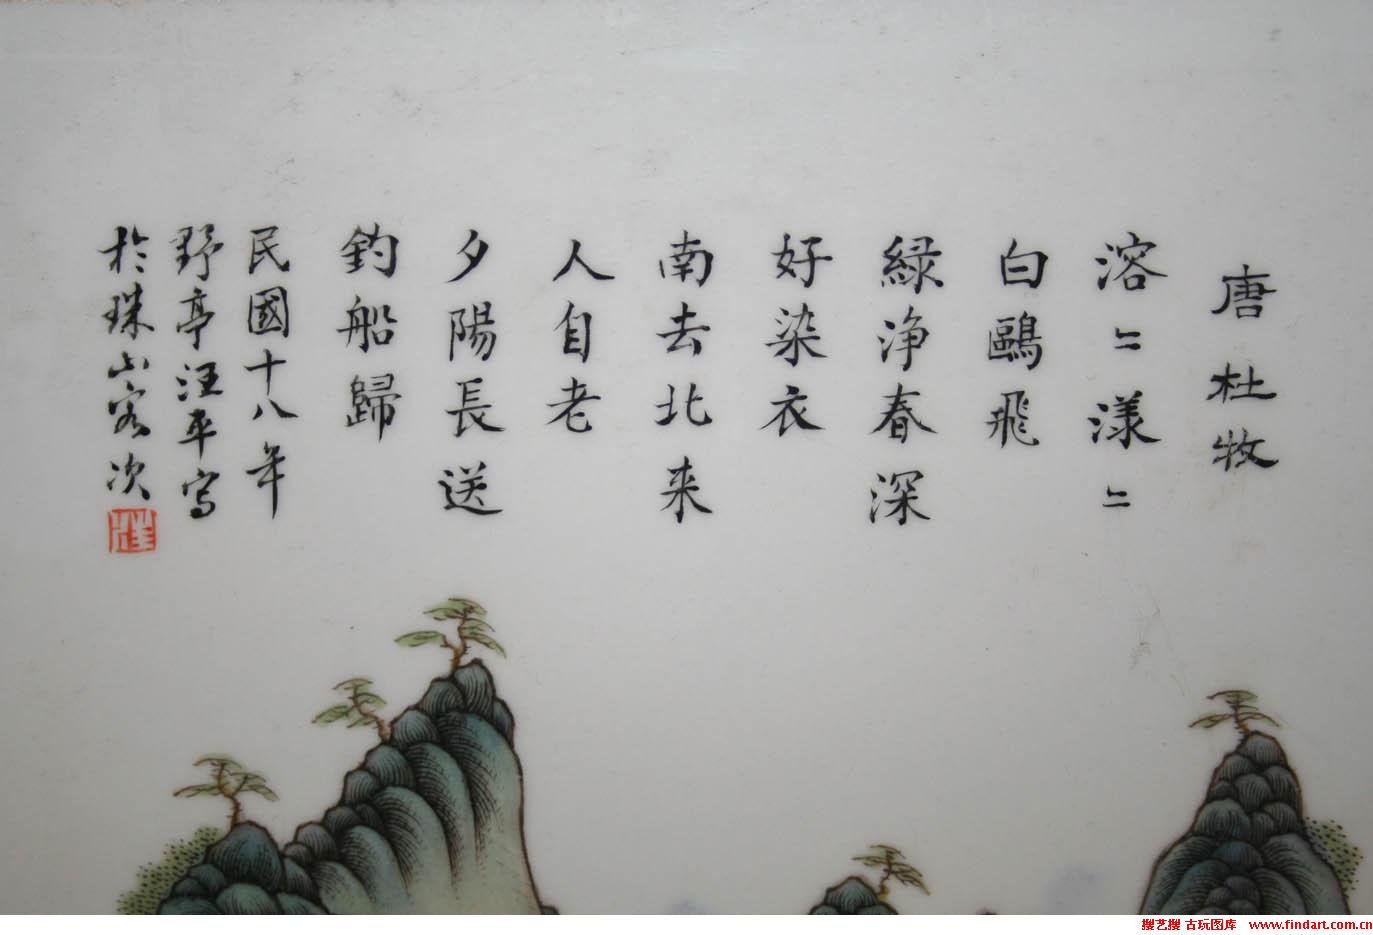 唐杜牧
溶〻漾〻
白鷗飛
緑浄春深
好染衣
南去北来
人自老
夕陽長送
釣船歸
民國十八年
野亭汪平寫
於珠山客次
搜艺搜 古玩图库 www.findart.com.cn